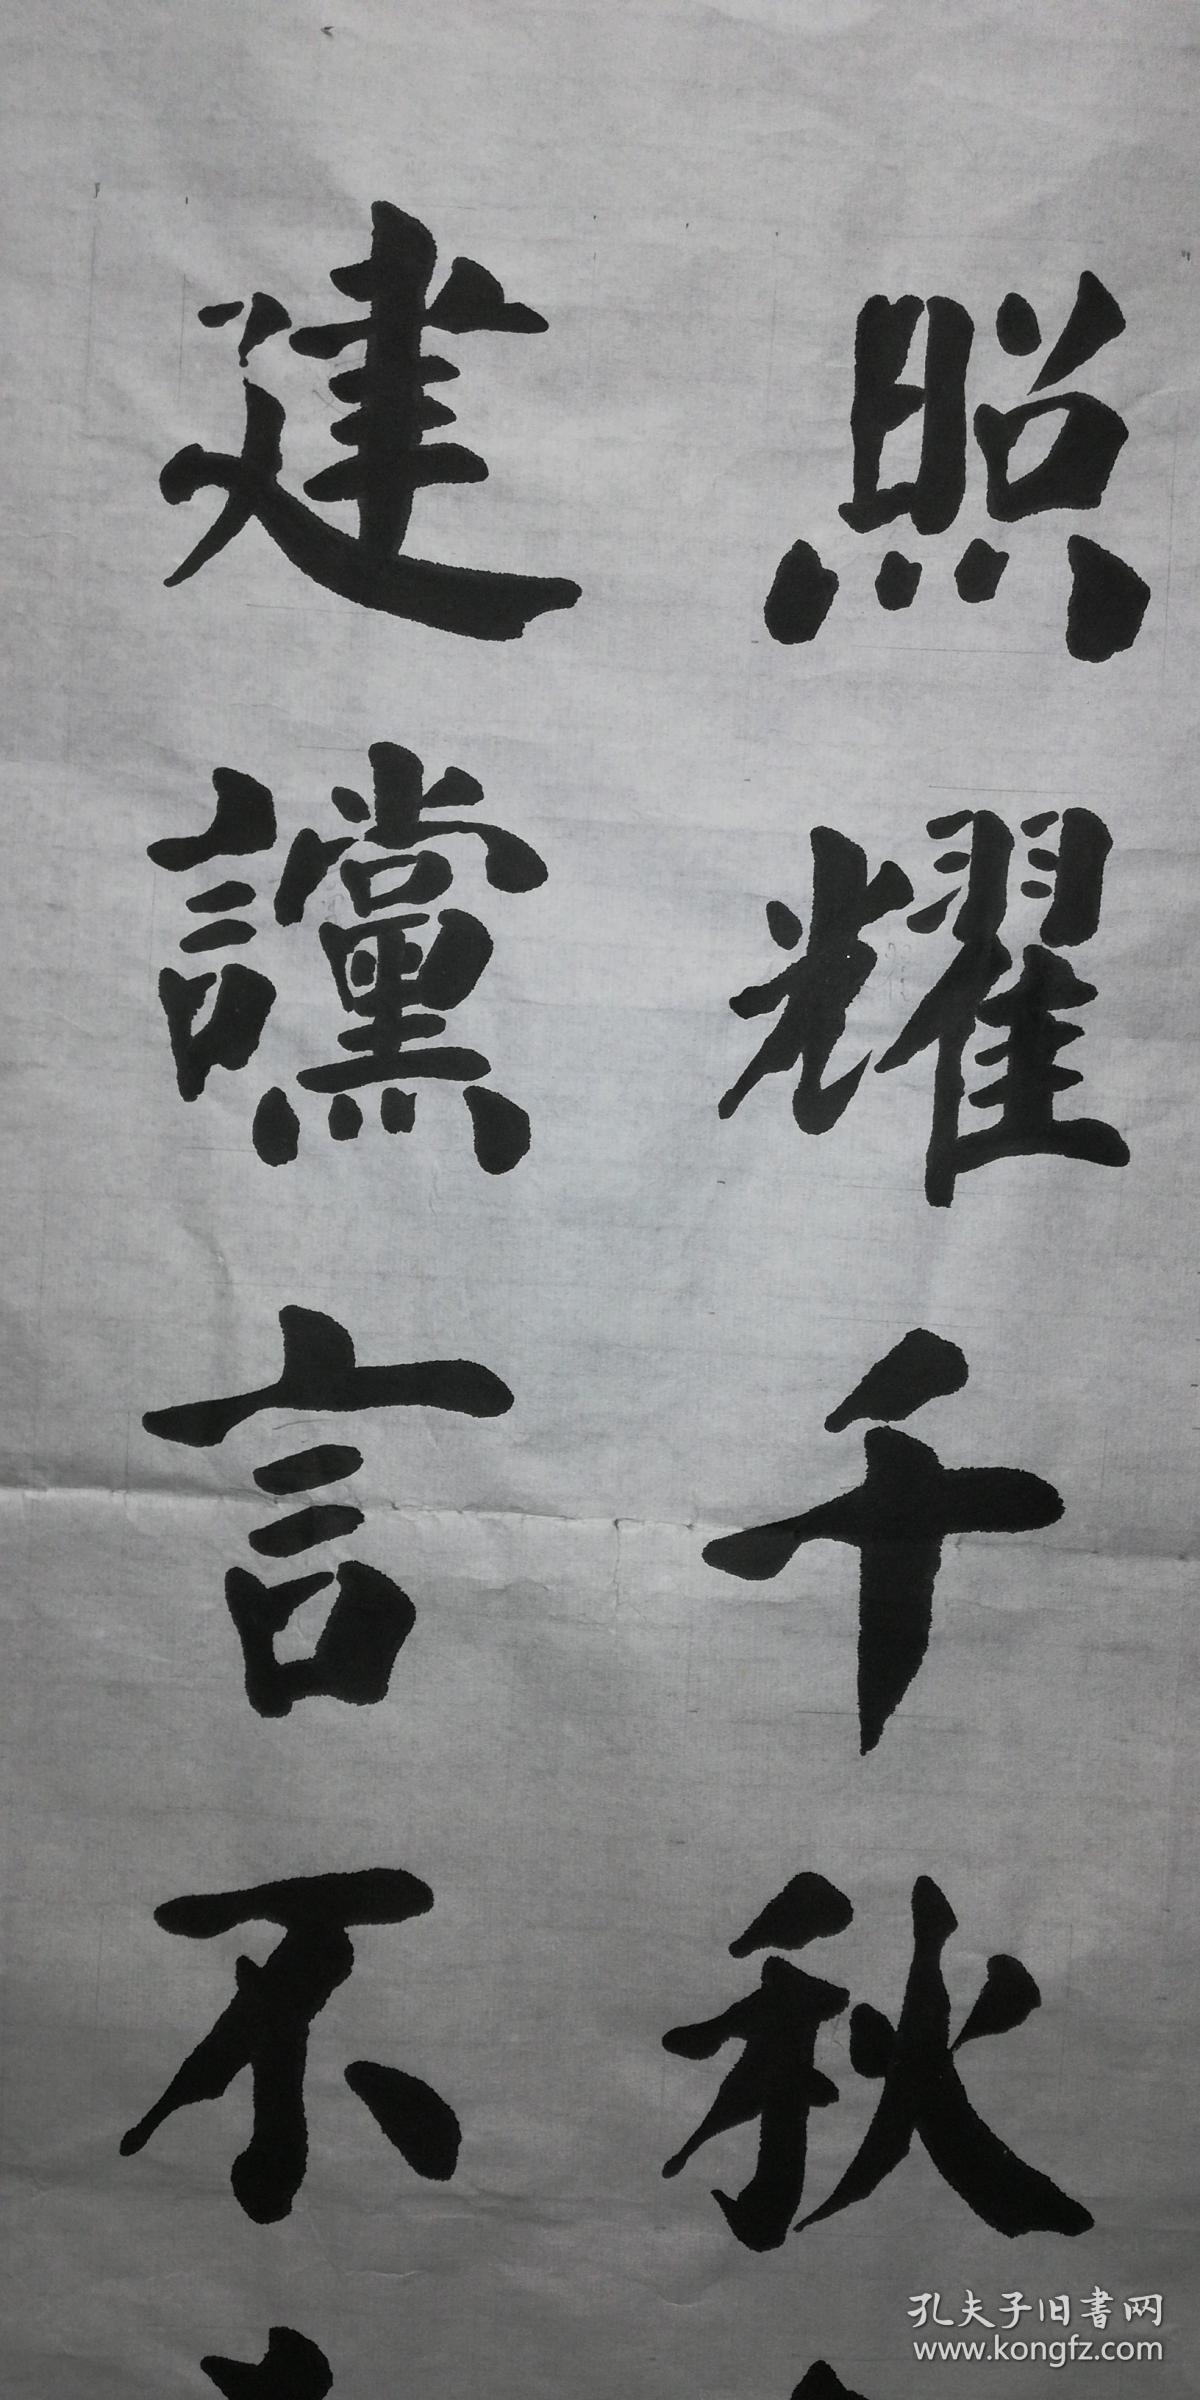 照耀千秋
建讜言不
孔夫子旧书网
www.kongfz.com